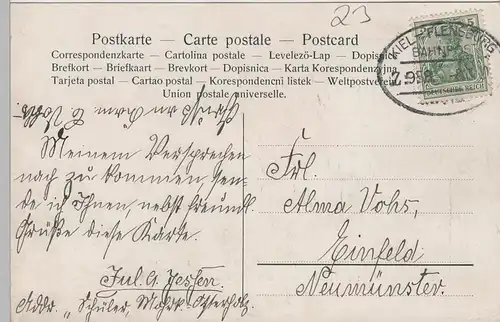 23
Postkarte – Carte postale – Postcard
Correspondenzkarte – Cartolina postale – Levelező-Lap – Dopisnice
Brefkort – Briefkaart – Brevkort – Dopisnica – Karta Korespondencyjna
Tarjeta postal – Cartao postal – Korespondenční listek – Weltpostverein
Union postale universelle.
KIEL-FLENSBURG
BAHNPOST
Z. 988
5
DEUTSCHES REICH
Meinem Versprechen
nach zu kommen, sen-
de ich Ihnen, nebst freundl.
Grüße diese Karte.
Jul. G. Jessen.
Addr. „Schüler,
Frl.
Alma Vohs,
Einfeld
Neumünster.